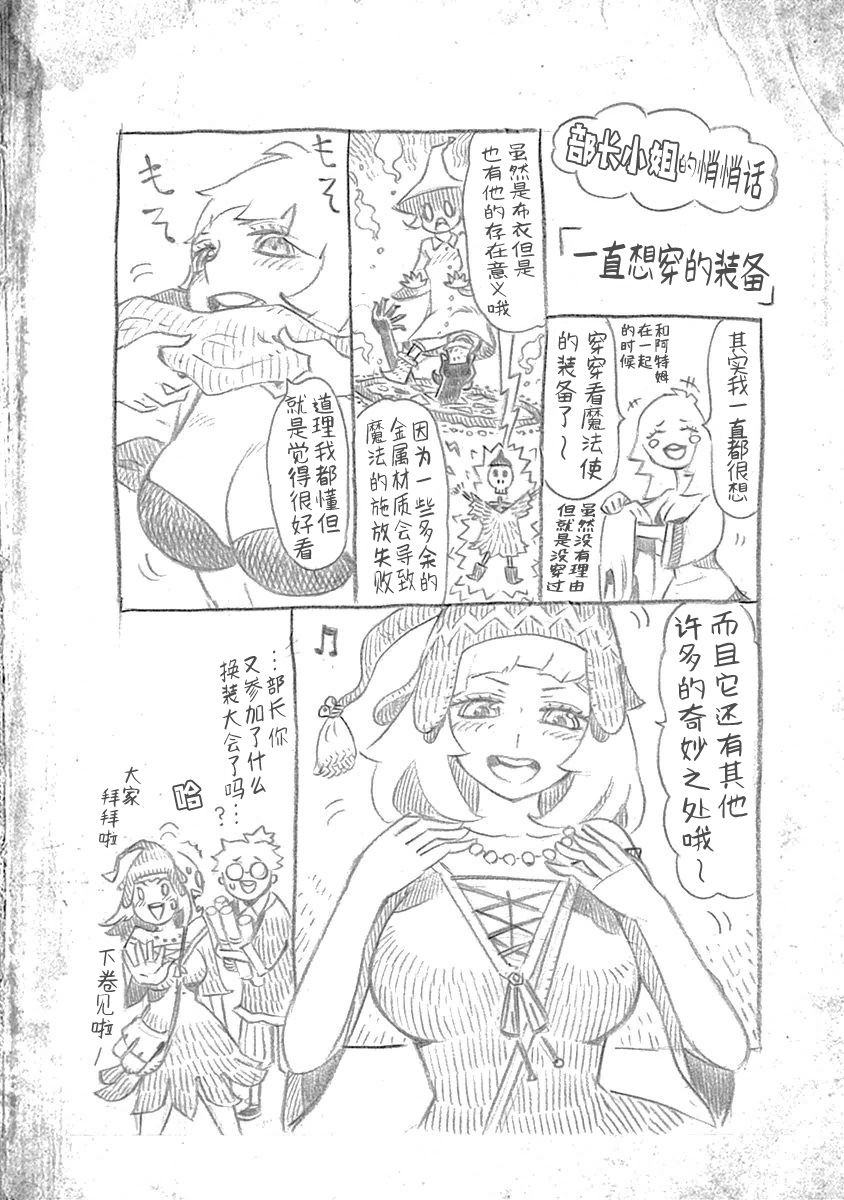 部长小姐的悄悄话
「一直想穿的装备」
其实我一直都很想
和阿特姆
在一起
的时候
穿穿看魔法使
的装备了～
虽然没有理由
但就是没穿过
虽然是布衣但是
也有他的存在意义哦
因为一些多余的
金属材质会导致
魔法的施放失败
もそ
もそ
道理我都懂但
就是觉得很好看
而且它还有其他
许多的奇妙之处哦～
♪
…部长你
又参加了什么
换装大会了吗…?
哈
大家
拜拜啦
下卷见啦～